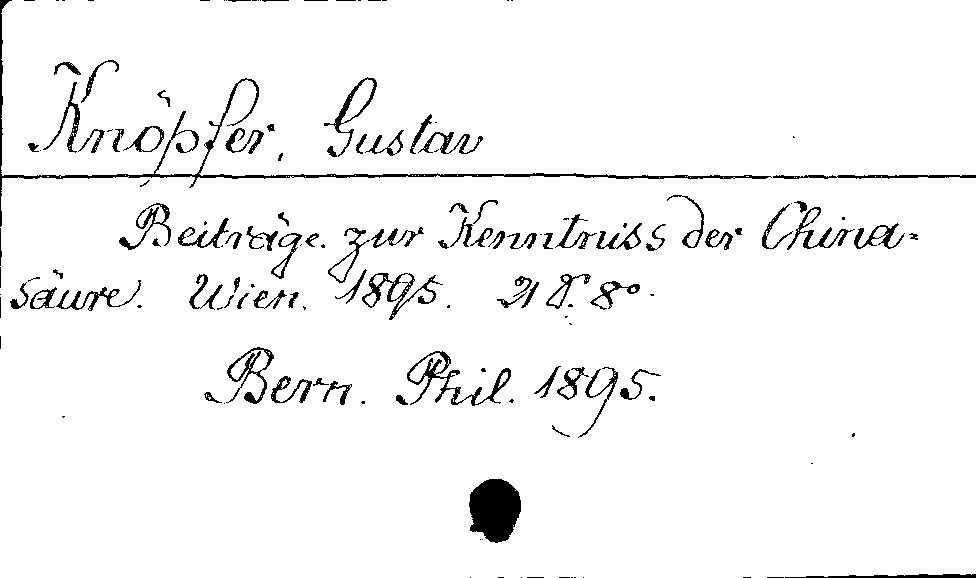 Knöpfer, Gustav
Beiträge zur Kenntniss der China-
säure. Wien. 1895. 21 S. 8°.
Bern. Phil. 1895.